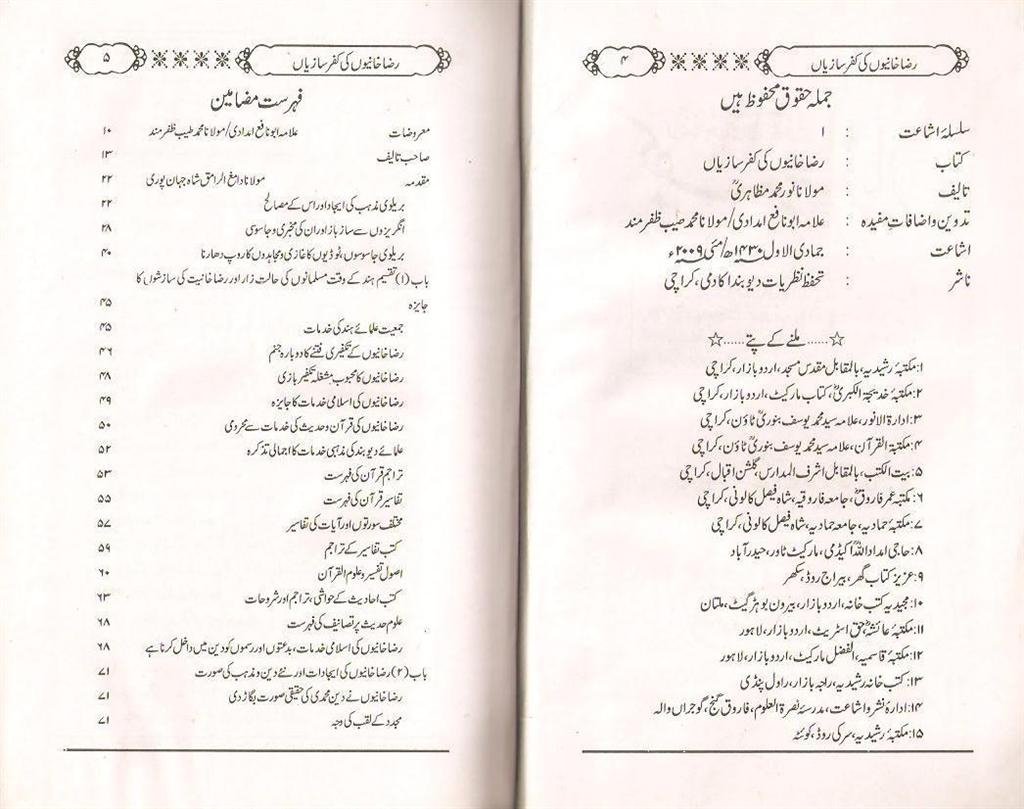 رضاخانیوں کی کفر سازیاں ۴
جملہ حقوق محفوظ ہیں
سلسلۂ اشاعت : ۱
کتاب : رضاخانیوں کی کفر سازیاں
تالیف : مولانا نور محمد مظاہریؒ
تدوین و اضافات مفیدہ : علامہ ابو نافع امدادی/مولانا محمد طیب ظفر مند
اشاعت : جمادی الاول ۱۴۳۰ھ/مئی ۲۰۰۹ء
ناشر : تحفظ نظریات دیوبند اکادمی، کراچی
☆......ملنے کے پتے......☆
۱: مکتبۂ رشیدیہ، بالمقابل مقدس مسجد، اردو بازار، کراچی
۲: مکتبۂ خدیجۃ الکبریؓ، کتاب مارکیٹ، اردو بازار، کراچی
۳: ادارۃ الانور، علامہ سید محمد یوسف بنوریؒ ٹاؤن، کراچی
۴: مکتبۃ القرآن، علامہ سید محمد یوسف بنوریؒ ٹاؤن، کراچی
۵: بیت الکتب، بالمقابل اشرف المدارس، گلشن اقبال، کراچی
۶: مکتبۂ عمر فاروقؓ، جامعہ فاروقیہ، شاہ فیصل کالونی، کراچی
۷: مکتبۂ حمادیہ، جامعہ حمادیہ، شاہ فیصل کالونی، کراچی
۸: حاجی امداد اللہؒ اکیڈمی، مارکیٹ ٹاور، حیدر آباد
۹: عزیز کتاب گھر، بیراج روڈ، سکھر
۱۰: مجیدیہ کتب خانہ، اردو بازار، بیرون بوہڑ گیٹ، ملتان
۱۱: مکتبۂ عائشہؓ، حق اسٹریٹ، اردو بازار، لاہور
۱۲: مکتبۂ قاسمیہ، الفضل مارکیٹ، اردو بازار، لاہور
۱۳: کتب خانہ رشیدیہ، راجہ بازار، راول پنڈی
۱۴: ادارۂ نشر و اشاعت، مدرسۂ نصرۃ العلوم، فاروق گنج، گوجراں والہ
۱۵: مکتبۂ رشیدیہ، سرکی روڈ، کوئٹہ
رضاخانیوں کی کفر سازیاں ۵
فہرست مضامین
معروضات علامہ ابو نافع امدادی/مولانا محمد طیب ظفر مند ۱۰
صاحب تالیف ۱۳
مقدمہ مولانا دامغ الرامق شاہ جہان پوری ۲۲
بریلوی مذہب کی ایجاد اور اس کے مصالح ۲۲
انگریزوں سے ساز باز اور ان کی مخبری و جاسوسی ۲۸
بریلوی جاسوسوں، ٹوڈیوں کا غازی و مجاہدوں کا روپ دھارنا ۴۰
باب (۱) تقسیم ہند کے وقت مسلمانوں کی حالت زار اور رضاخانیت کی سازشوں کا
جائزہ ۴۵
جمعیت علمائے ہند کی خدمات ۴۵
رضاخانیوں کے تکفیری فتنے کا دوبارہ جنم ۴۶
رضاخانیوں کا محبوب مشغلہ تکفیر بازی ۴۸
رضاخانیوں کی اسلامی خدمات کا جائزہ ۴۹
رضاخانیوں کی قرآن و حدیث کی خدمات سے محرومی ۵۰
علمائے دیوبند کی مذہبی خدمات کا اجمالی تذکرہ ۵۲
تراجم قرآن کی فہرست ۵۳
تفاسیر قرآن کی فہرست ۵۵
مختلف سورتوں اور آیات کی تفاسیر ۵۷
کتب تفاسیر کے تراجم ۵۹
اصول تفسیر و علوم القرآن ۶۰
کتب احادیث کے حواشی، تراجم اور شروحات ۶۳
علوم حدیث پر تصانیف کی فہرست ۶۸
رضاخانیوں کی اسلامی خدمات، بدعتوں اور رسموں کو دین میں داخل کرنا ہے ۶۸
باب (۲) رضاخانیوں کی ایجادات اور نئے دین و مذہب کی صورت ۷۱
رضاخانیوں نے دین محمدی کی حقیقی صورت بگاڑ دی ۷۱
مجدد کے لقب کی وجہ ۷۱